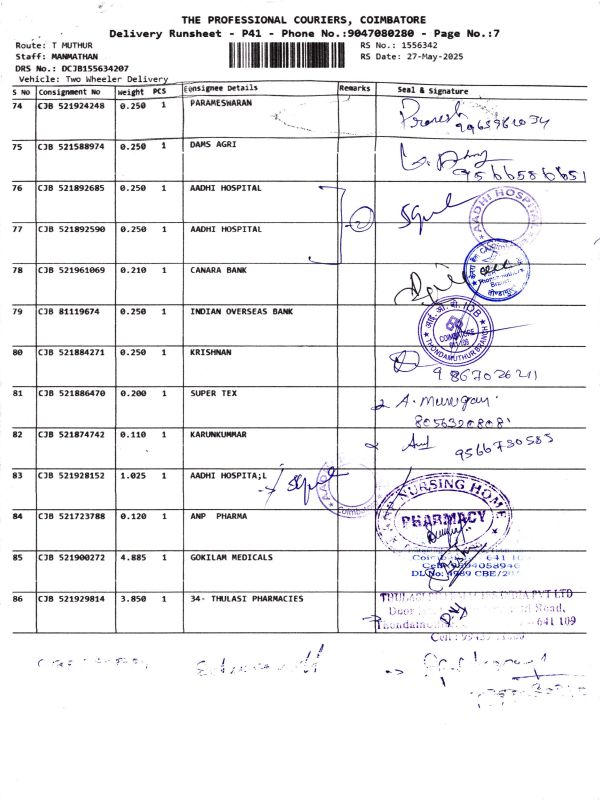 THE PROFESSIONAL COURIERS, COIMBATORE
Delivery Runsheet - P41 - Phone No.:9047080280 - Page No.:7
Route: T MUTHUR RS No.: 1556342
Staff: MANMATHAN RS Date: 27-May-2025
DRS No.: DCJB155634207
Vehicle: Two Wheeler Delivery
S No Consignment No Weight PCS Consignee Details Remarks Seal & Signature
74 CJB 521924248 0.250 1 PARAMESHARAN
75 CJB 521588974 0.250 1 DAMS AGRI
9566586651
76 CJB 521892685 0.250 1 AADHI HOSPITAL
AADHI HOSPITAL
77 CJB 521892590 0.250 1 AADHI HOSPITAL
78 CJB 521961069 0.210 1 CANARA BANK
79 CJB 81119674 0.250 1 INDIAN OVERSEAS BANK
IOB
COIMBATORE
THONDAMUTHUR BRANCH
80 CJB 521884271 0.250 1 KRISHNAN
9867026211
81 CJB 521886470 0.200 1 SUPER TEX
A. Murugan
8056320808
82 CJB 521874742 0.110 1 KARUNKUMMAR
9566730585
83 CJB 521928152 1.025 1 AADHI HOSPITA;L
NURSING HOME
84 CJB 521723788 0.120 1 ANP PHARMA
PHARMACY
85 CJB 521900272 4.885 1 GOKILAM MEDICALS
86 CJB 521929814 3.850 1 34- THULASI PHARMACIES
INDIA PVT LTD
Road,
641 109